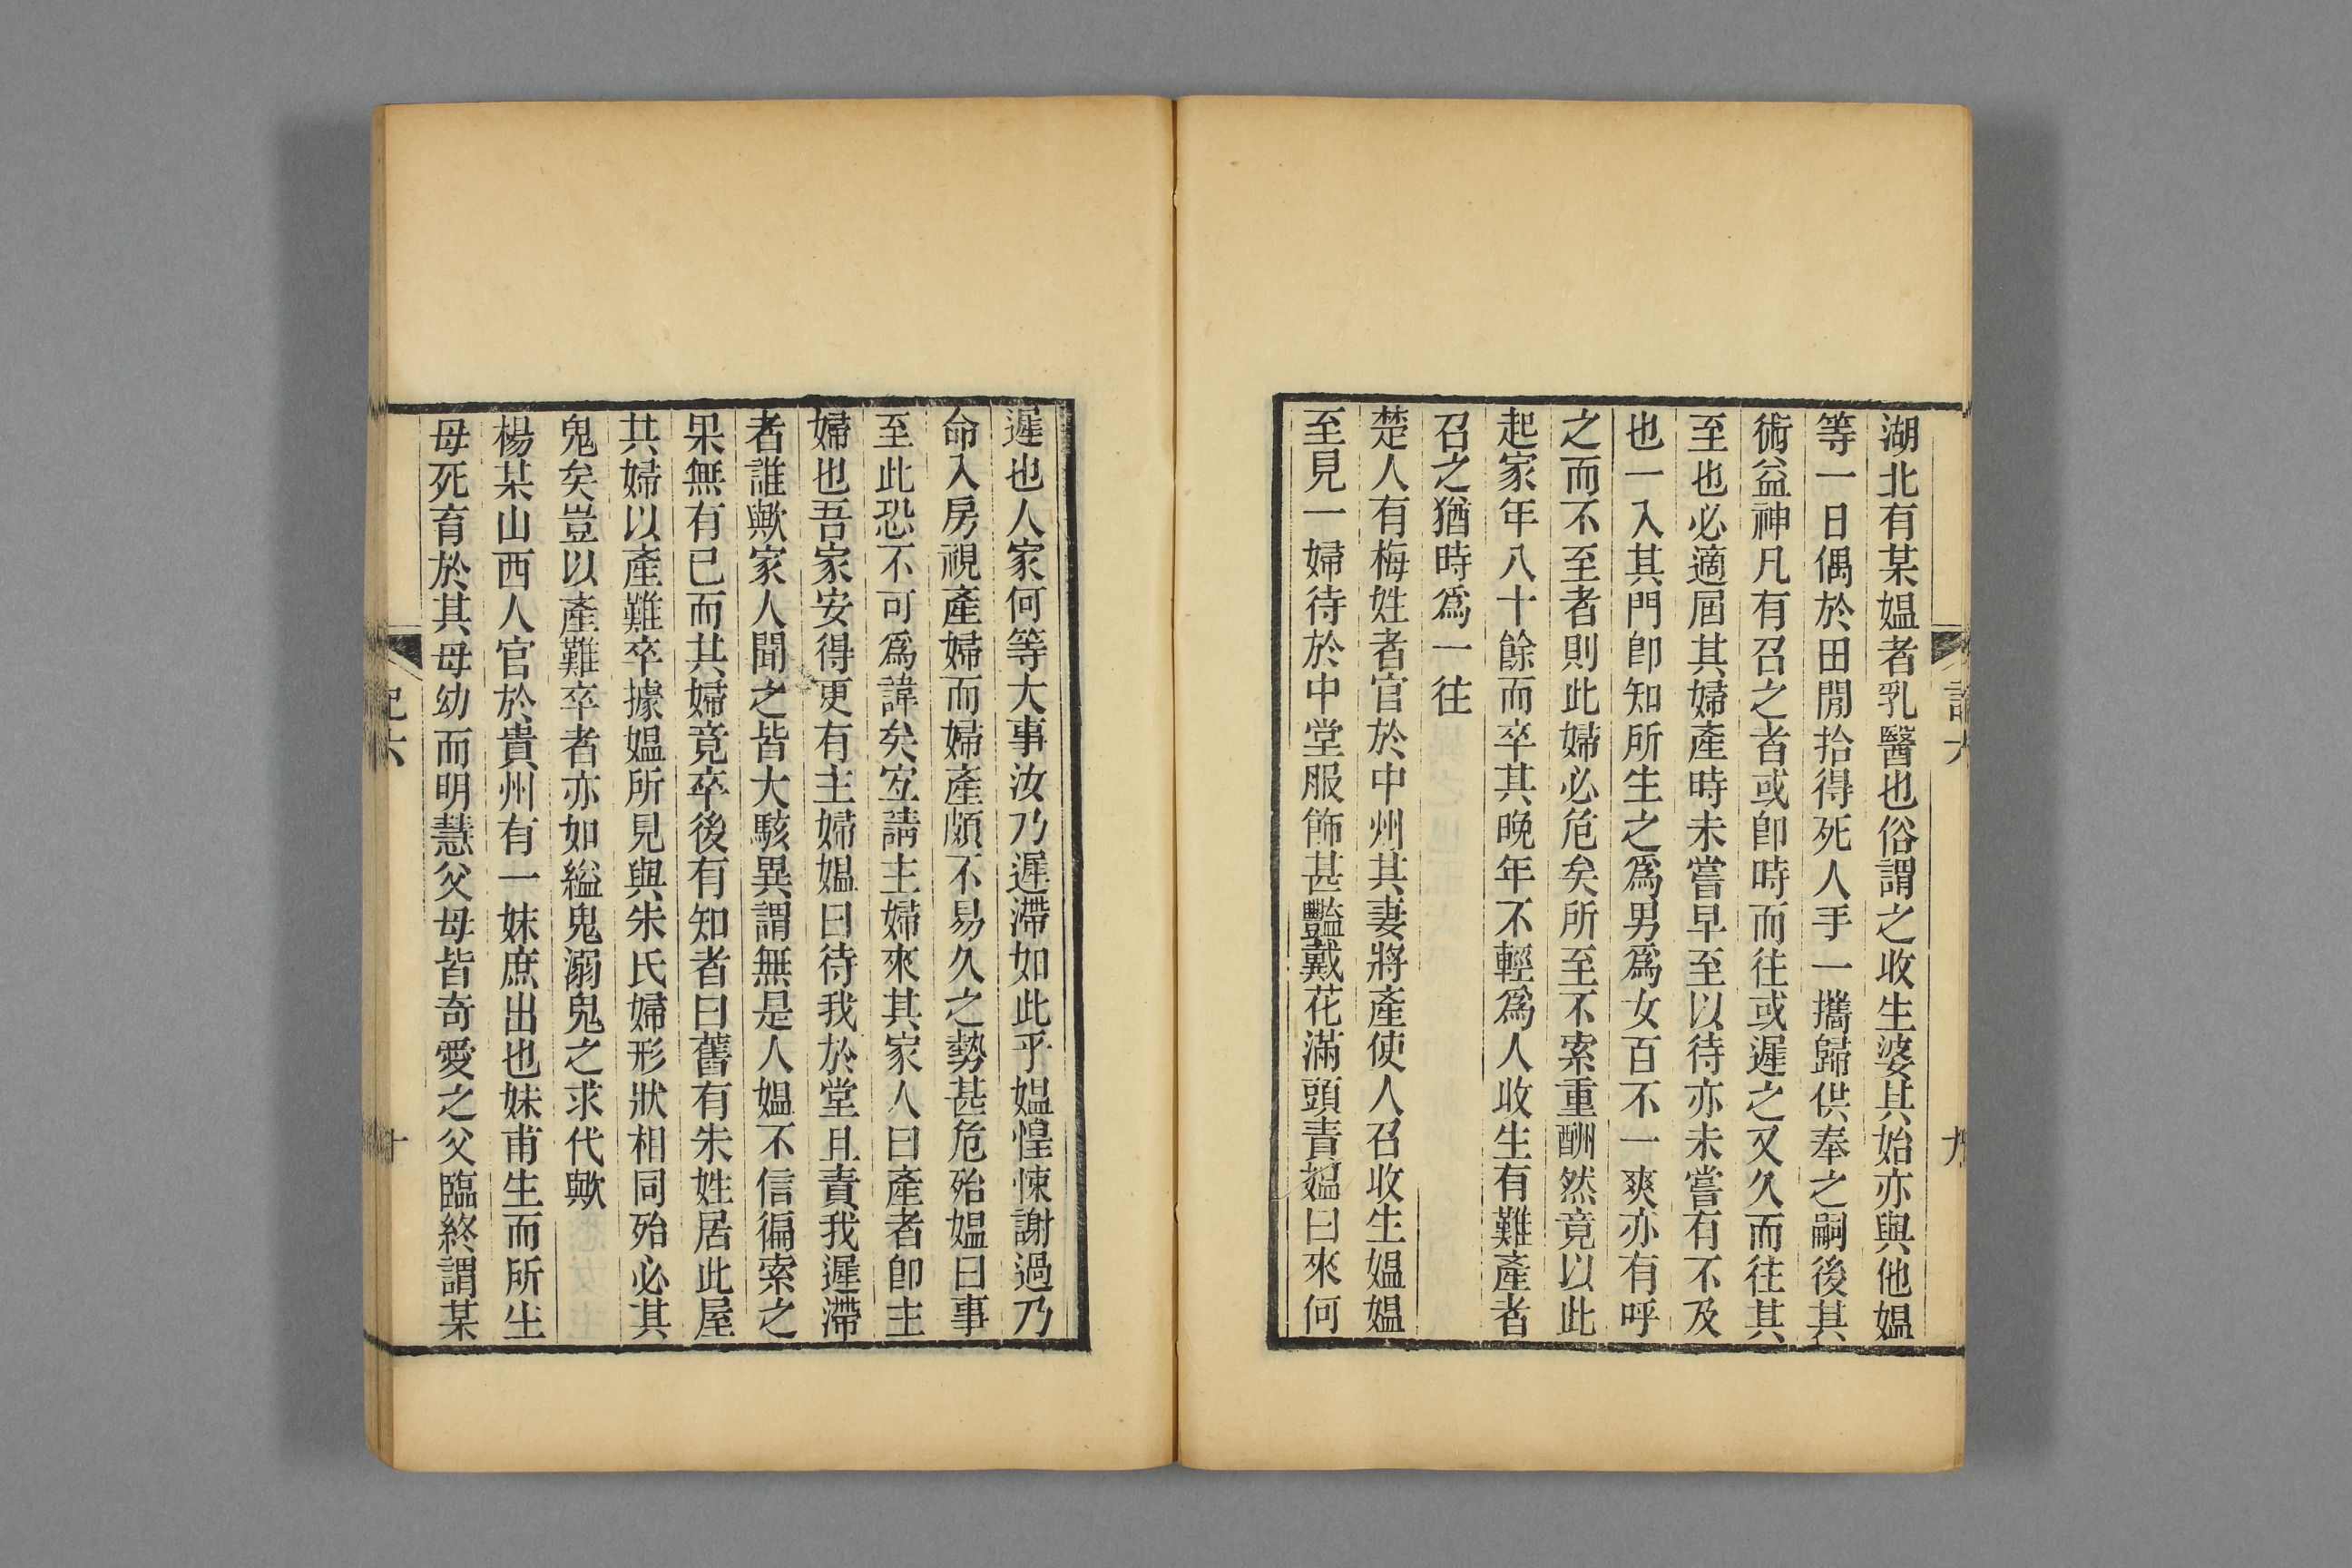 湖北有某媼者乳醫也俗謂之收生婆其始亦與他媼
等一日偶於田閒拾得死人手一攜歸供奉之嗣後其
術益神凡有召之者或卽時而往或遲之又久而往其
至也必適屆其婦產時未嘗早至以待亦未嘗有不及
也一入其門卽知所生之爲男爲女百不一爽亦有呼
之而不至者則此婦必危矣所至不索重酬然竟以此
起家年八十餘而卒其晚年不輕爲人收生有難產者
召之猶時爲一往
楚人有梅姓者官於中州其妻將產使人召收生媼媼
至見一婦待於中堂服飾甚豔戴花滿頭責媼曰來何
遲也人家何等大事汝乃遲滯如此乎媼惶悚謝過乃
命入房視產婦而婦產頗不易久之勢甚危殆媼曰事
至此恐不可爲諱矣宐請主婦來其家人曰產者卽主
婦也吾家安得更有主婦媼曰待我於堂且責我遲滯
者誰歟家人聞之皆大駭異謂無是人媼不信徧索之
果無有已而其婦竟卒後有知者曰舊有朱姓居此屋
其婦以產難卒據媼所見與朱氏婦形狀相同殆必其
鬼矣豈以產難卒者亦如縊鬼溺鬼之求代歟
楊某山西人官於貴州有一妹庶出也妹甫生而所生
母死育於其母幼而明慧父母皆奇愛之父臨終謂某